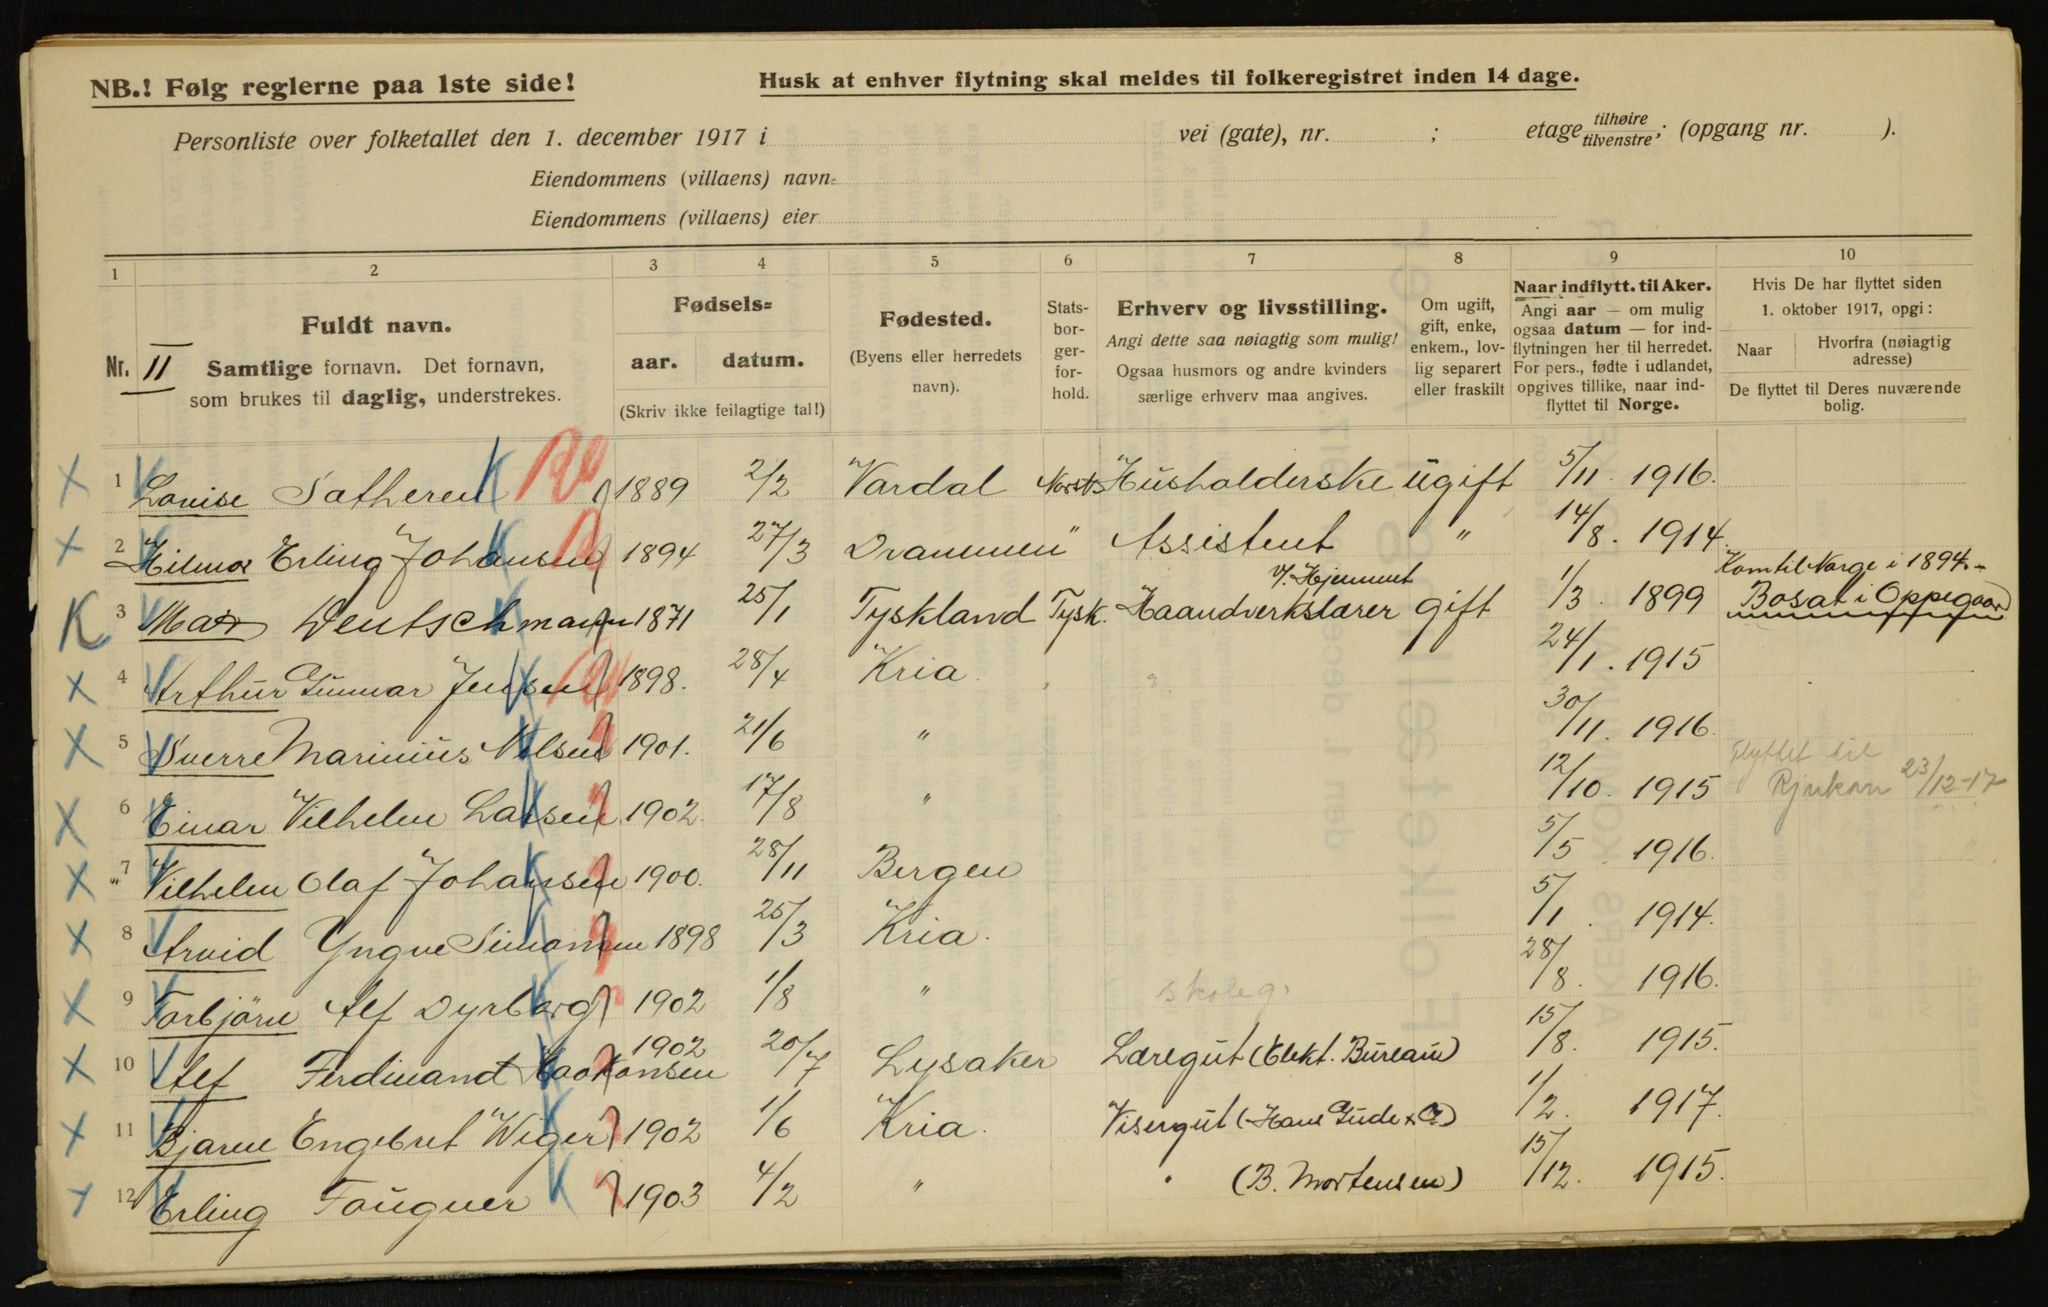 NB.! Følg reglerne paa 1ste side!
Husk at enhver flytning skal meldes til folkeregistret inden 14 dage.
Personliste over folketallet den 1. december 1917 i vei (gate), nr. ; etage tilhøire tilvenstre; (opgang nr. ).
Eiendommens (villaens) navn
Eiendommens (villaens) eier
1 2 3 4 5 6 7 8 9 10
Nr. II
Fuldt navn.
Samtlige fornavn. Det fornavn,
som brukes til daglig, understrekes.
Fødsels=
aar. datum.
(Skriv ikke feilagtige tal!)
Fødested.
(Byens eller herredets
navn).
Stats-
bor-
ger-
for-
hold.
Erhverv og livsstilling.
Angi dette saa nøiagtig som mulig!
Ogsaa husmors og andre kvinders
særlige erhverv maa angives.
Om ugift,
gift, enke,
enkem., lov-
lig separert
eller fraskilt
Naar indflytt. til Aker.
Angi aar — om mulig
ogsaa datum — for ind-
flytningen her til herredet.
For pers., fødte i udlandet,
opgives tillike, naar ind-
flyttet til Norge.
Hvis De har flyttet siden
1. oktober 1917, opgi:
Naar
Hvorfra (nøiagtig
adresse)
De flyttet til Deres nuværende
bolig.
1 Louise Satheren 1889 2/2 Vardal Norsk Husholderske ugift 5/11. 1916.
2 Hilmar Erling Johansen 1894 27/3 Drammen " Assistent " 14/8. 1914.
v. Hjemmet Kom til Norge i 1894.-
3 Max Deutschmann 1871 25/1 Tyskland Tysk. Haandverkslærer gift 1/3. 1899 Bosat i Oppegaard
4 Arthur Gunnar Jensen 1898. 28/4 Kria. 24/1. 1915
5 Sverre Marinius Nilsen 1901. 21/6 " 30/11. 1916.
Flyttet til
6 Einar Vilhelm Larsen 1902. 17/8 " 12/10. 1915 Rjukan 23/12-17
7 Vilhelm Olaf Johansen 1900. 28/11 Bergen 5/5 1916.
8 Arvid Yngve Simonsen 1898 25/3 Kria. 5/1. 1914.
9 Torbjörn Alf Dyrberg 1902 1/8 " skoleg. 28/8. 1916.
10 Alf Ferdinand Haakonsen 1902 20/7 Lysaker Læregut (Elekt. Bureau) 15/8. 1915.
11 Bjarne Engebret Wiger 1902 1/6 Kria. Visergut (Hans Gude & Co) 1/2. 1917.
12 Erling Fougner 1903 4/2 " " (B. Mortensen) 15/12. 1915.